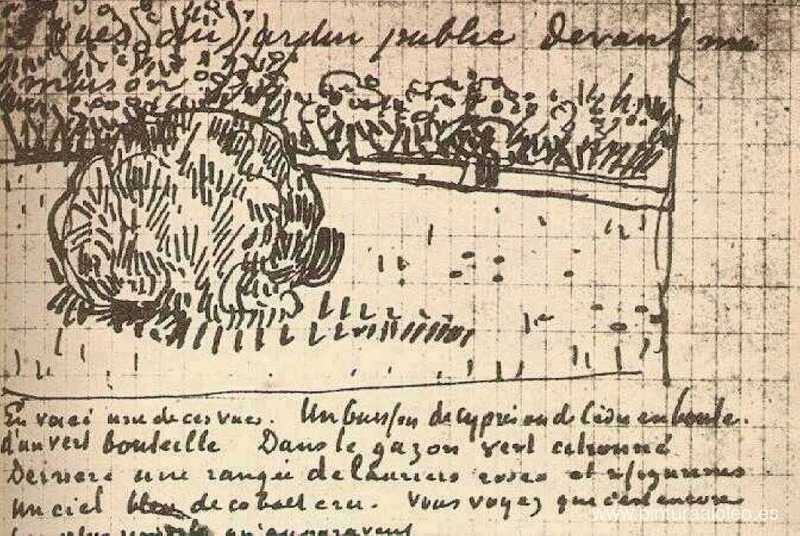 vues du jardin public devant ma
maison
En voici une de ces vues. Un buisson de cyprès ou de cèdre en boule.
d'un vert bouteille Dans le gazon vert citronné
Derrière une rangée de lauriers roses et 2 figurines
Un ciel bleu de cobalt cru. Vous voyez que c'est encore
plus qu'auparavant
www.pinturaaloleo.es